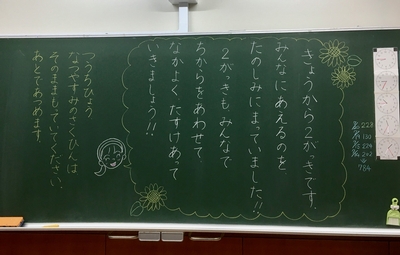 きょうから2がっきです。
みんなにあえるのを
たのしみにまっていました!!
2がっきも みんなで
ちからをあわせて、
なかよく たすけあって
いきましょう!!
つうちひょう
なつやすみのさくひんは
そのままもっていてください。
あとであつめます。